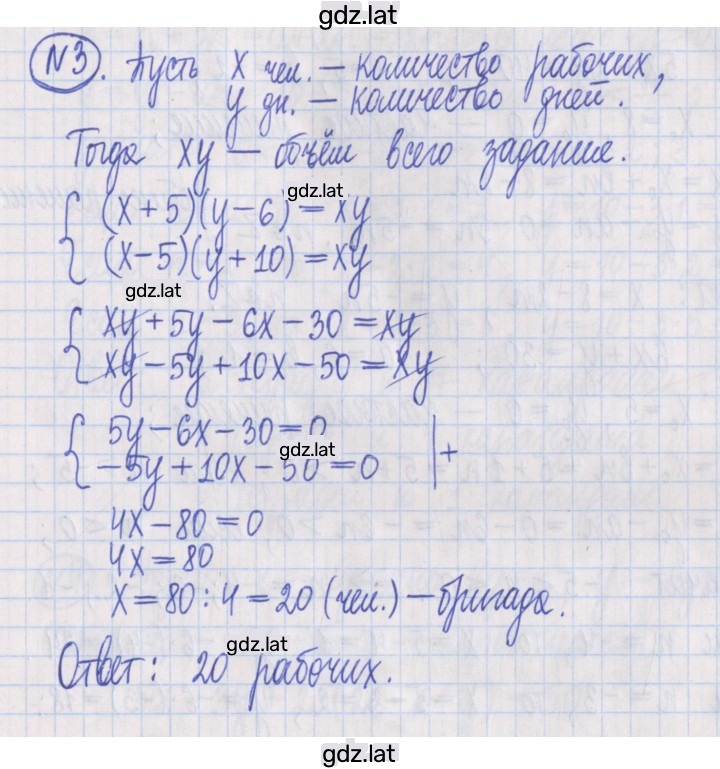 gdz.lat
№3. Пусть x чел. — количество рабочих,
y дн. — количество дней.
Тогда xy — объём всего задания.
gdz.lat
(x+5)(y−6) = xy
(x−5)(y+10) = xy
gdz.lat
xy+5y−6x−30=xy
xy−5y+10x−50=xy
5y−6x−30=0
gdz.lat
−5y+10x−50=0 | +
4x−80=0
4x=80
x=80:4=20 (чел.) — бригада.
gdz.lat
Ответ: 20 рабочих.
gdz.lat